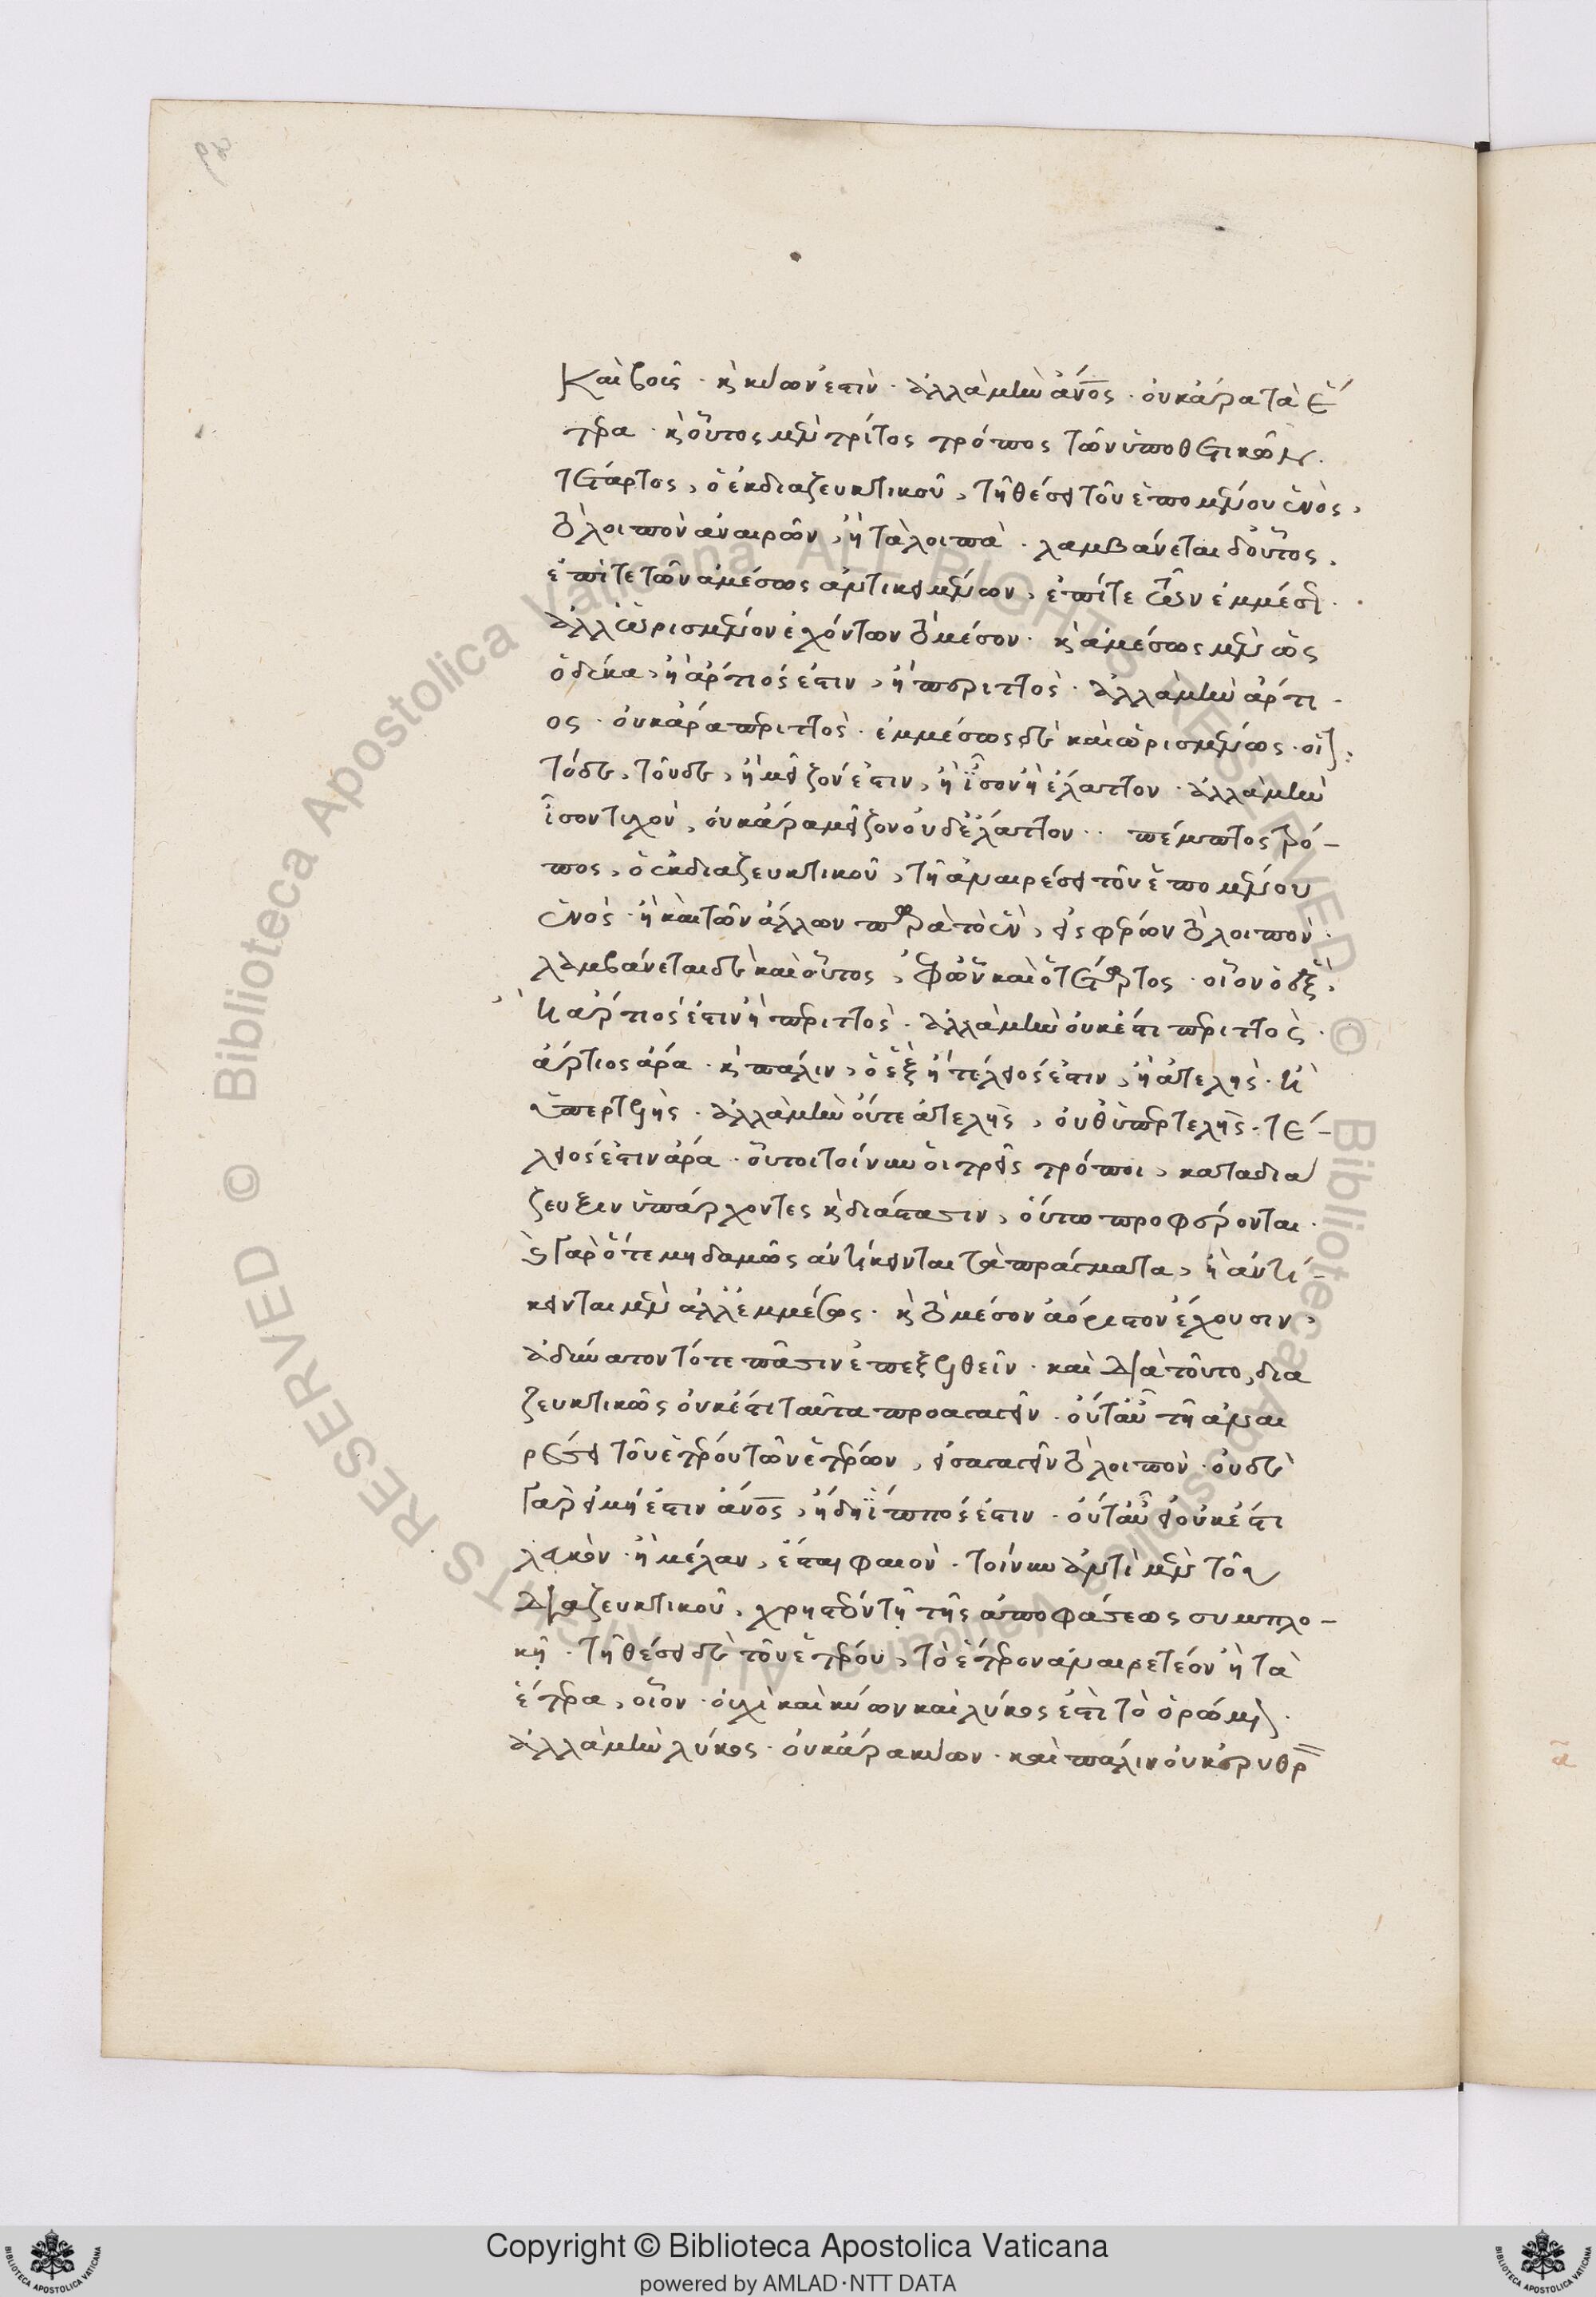 Καὶ βοῦς · κ̀ κύων ἐστὶν · ἀλλὰ μὴν ἄν̅ος · οὐκ ἄρα τὰ ἕ
τερα · κ̀ οὗτος μὲν τρίτος τρόπος τῶν ὑποθετικῶν ·
τέταρτος, ὁ ἐκ διαζευκτικοῦ, τῇ θέσει τοῦ ἑπομένου ἑνὸς,
τὸ λοιπὸν ἀναιρῶν, ἢ τὰ λοιπὰ · λαμβάνεται δ' οὗτος,
ἐπί τε τῶν ἀμέσως ἀντικειμένων, ἐπί τε τῶν ἐμμέσως ·
ἀλλ' ὡρισμένον ἐχόντων τὸ μέσον · κ̀ ἀμέσως μὲν ὡς
ὁ δέκα, ἢ ἄρτιός ἐστιν, ἢ περιττὸς · ἀλλὰ μὴν ἄρτι
ος · οὐκ ἄρα περιττὸς · ἐμμέσως δὲ καὶ ὡρισμένως · οἷον:
τόδε, τοῦδε, ἢ μεῖζόν ἐστιν, ἢ ἴσον ἢ ἔλαττον · ἀλλὰ μὴν
ἴσον τυχὸν, οὐκ ἄρα μεῖζον οὐδ' ἔλαττον · · πέμπτος τρό-
πος, ὁ ἐκ διαζευκτικοῦ, τῇ ἀναιρέσει τοῦ ἑπομένου
ἑνὸς · ἢ καὶ τῶν ἄλλων παρὰ τὸ ἓν, εἰσφέρων τὸ λοιπὸν ·
λαμβάνεται δὲ καὶ οὗτος, ἐφ' ὧν καὶ ὁ τέταρτος · οἷον ὁ ἓξ,
ἢ ἄρτιός ἐστιν ἢ περιττὸς · ἀλλὰ μὴν οὐκ ἔστι περιττὸς ·
ἄρτιος ἄρα · κ̀ πάλιν, ὁ ἓξ ἢ τέλειός ἐστιν, ἢ ἀτελὴς · ἢ
ὑπερτελής · ἀλλὰ μὴν οὔτε ἀτελὴς, οὔθ' ὑπερτελὴς · τέ-
λειός ἐστιν ἄρα · οὗτοι τοίνυν οἱ τρεῖς τρόποι, κατὰ διά
ζευξιν ὑπάρχοντες κ̀ διάστασιν, οὕτω προφέρονται ·
εἰ γὰρ ὅτε μηδαμῶς ἀντίκεινται τὰ πράγματα, ἢ ἀντί-
κεινται μὲν ἀλλ' ἐμμέσως · κ̀ τὸ μέσον ἀόριστον ἔχουσιν,
ἀδύνατον τότε πᾶσιν ἐπεξελθεῖν · καὶ διὰ τοῦτο, δια
ζευκτικῶς οὐκ ἔστι ταῦτα προαγαγεῖν · οὔτ' αὖ τῇ ἀναι
ρέσει τοῦ ἑτέρου τῶν ἑτέρων, εἰσαγαγεῖν τὸ λοιπὸν · οὐδὲ
γὰρ εἰ μή ἐστιν ἄν̅ος, ἤδη ἵππός ἐστιν · οὔτ' αὖ εἰ οὐκ ἔστι
λευκὸν · ἢ μέλαν, ἔσται φαιὸν · τοίνυν ἀντὶ μὲν τοῦ
διαζευκτικοῦ, χρηστέον τῇ τῆς ἀποφάσεως συμπλο-
κῇ · τῇ θέσει δὲ τοῦ ἑτέρου, τὸ ἕτερον ἀναιρετέον ἢ τὰ
ἕτερα, οἷον · οὐχὶ καὶ κύων καὶ λύκος ἐστὶ τὸ ὁρώμενον ·
ἀλλὰ μὴν λύκος · οὐκ ἄρα κύων · καὶ πάλιν οὐκ ἐρυθρ